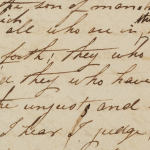 the son of man
all who are in
forth; they who
d they who have
the unjust, and
I hear I judge